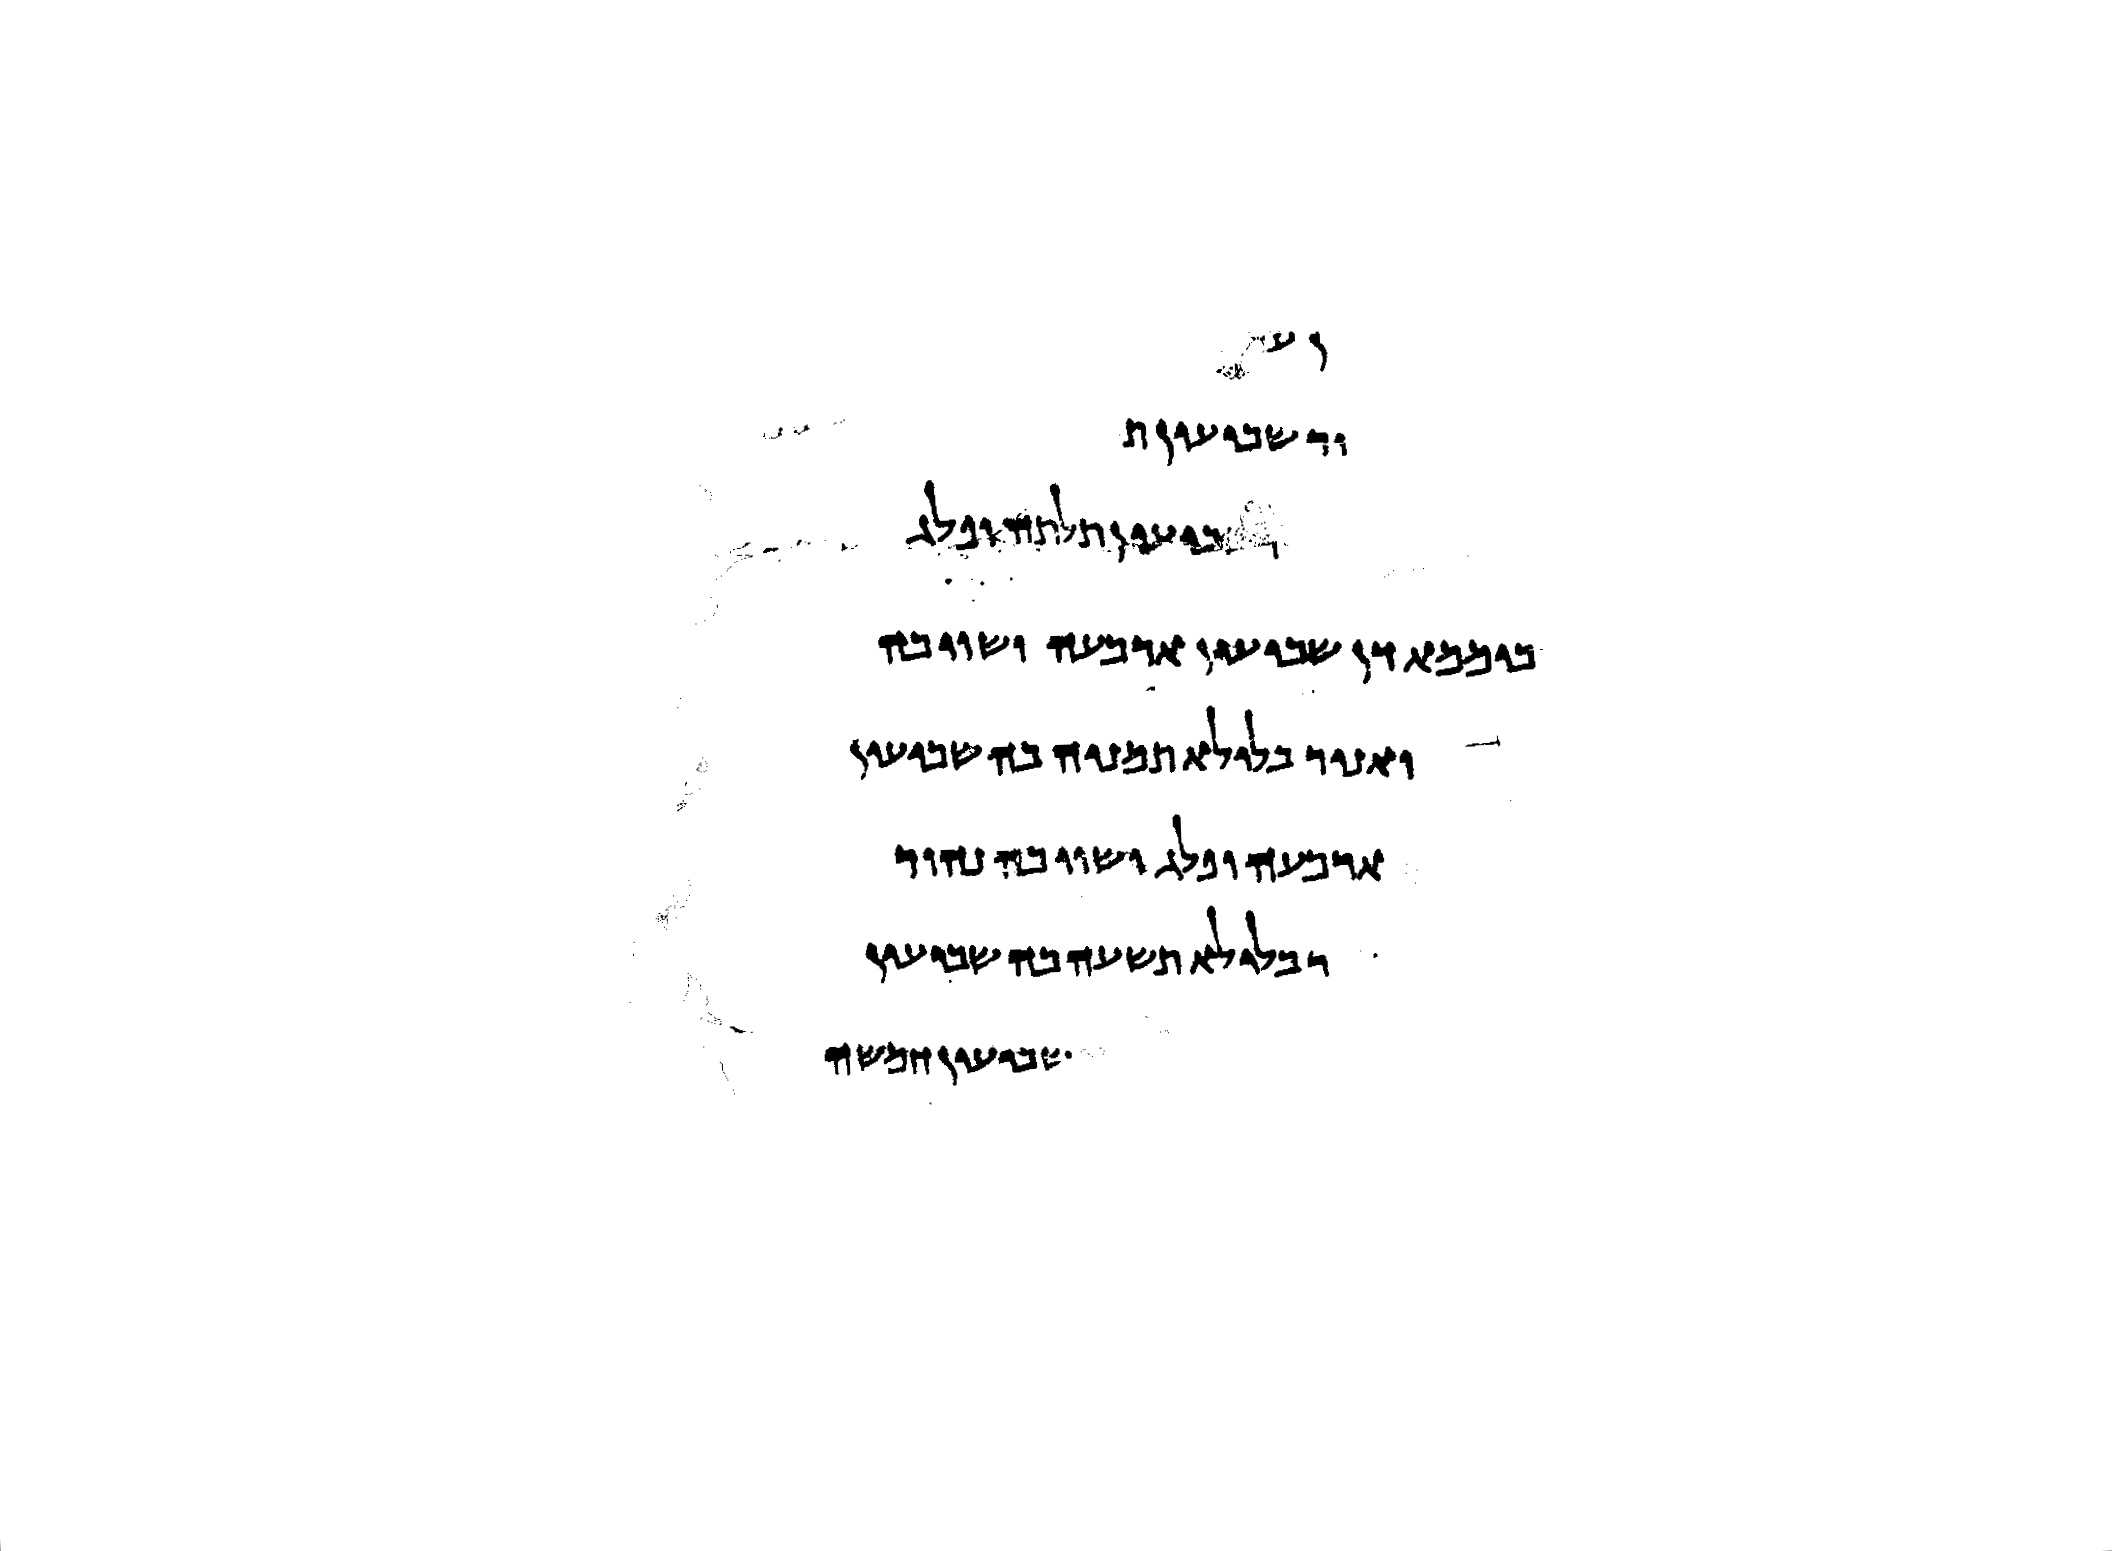 ן ע
וד שביעין ת
שביעין תלתה ופלג
ביממא דן שביעין ארבעה ושוי בה
ואניר בליליא תמניה בה שביעין
ארבעה ופלג ושוי בה נהור
ר בליליא תשעה בה שביעין
שביעין חמשה